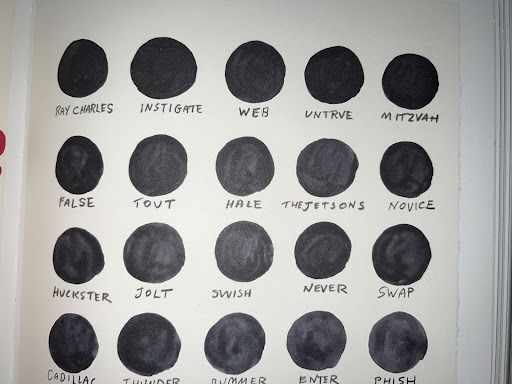 RAY CHARLES INSTIGATE WEB UNTRVE MITZVAH
FALSE TOUT HALE THE JETSONS NOVICE
HUCKSTER JOLT SWISH NEVER SWAP
CADILLAC THUNDER BUMMER ENTER PHISH